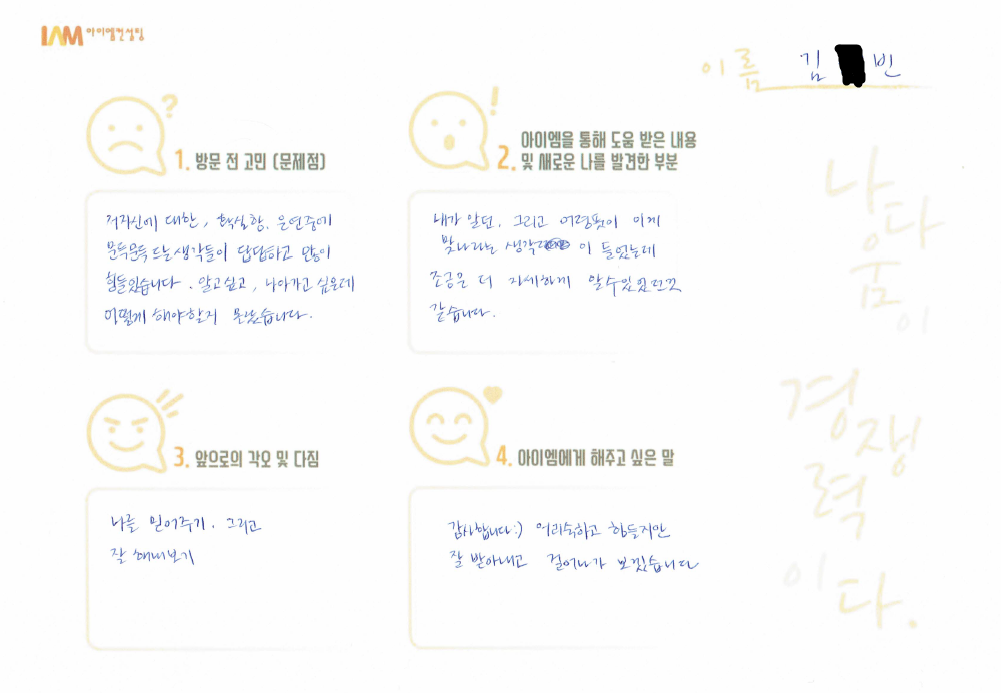 IAM 아이엠컨설팅
이름 김 빈
1. 방문 전 고민 (문제점)
저자신에 대한, 확실함, 은연중에
문득문득 드는 생각들이 답답하고 많이
힘들었습니다. 알고싶고, 나아가고 싶은데
어떻게 해야할지 몰랐습니다.
2. 아이엠을 통해 도움 받은 내용
및 새로운 나를 발견한 부분
내가 알던, 그리고 어렴풋이 이게
맞나라는 생각 이 들었는데
조금은 더 자세하게 알수있었던것
같습니다.
3. 앞으로의 각오 및 다짐
나를 믿어주기. 그리고
잘 해내보기
4. 아이엠에게 해주고 싶은 말
감사합니다:) 어리숙하고 힘들지만
잘 받아내고 걸어나가 보겠습니다
나다움이
경쟁력이다.